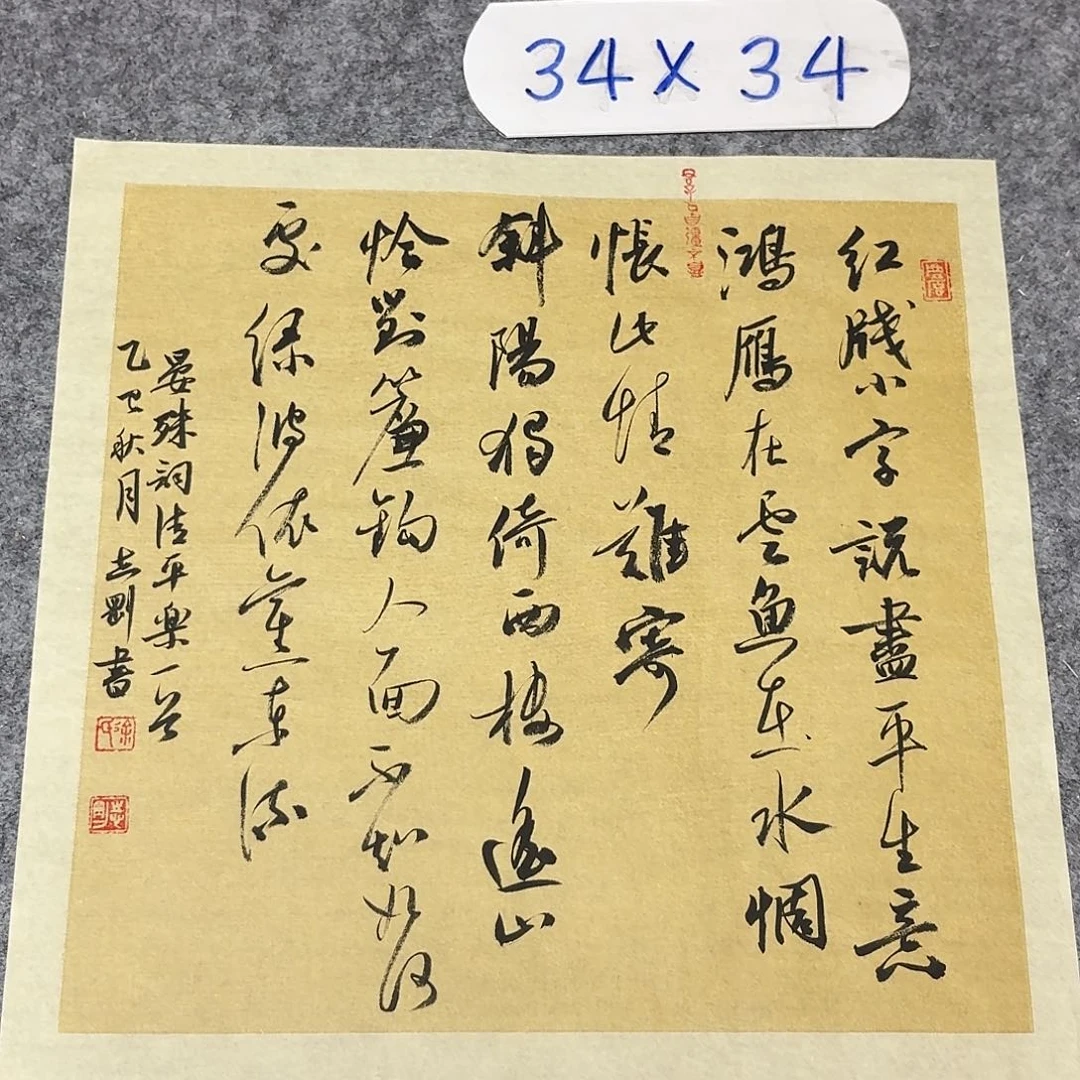 34X34
红牋小字説盡平生意
鴻鴈在雲魚在水惆
悵此情難寄
斜陽獨倚西樓遙山
恰對簾鈎人面不知如何
處緑波依舊東流
晏殊詞清平樂一首
乙巳秋月志剛書